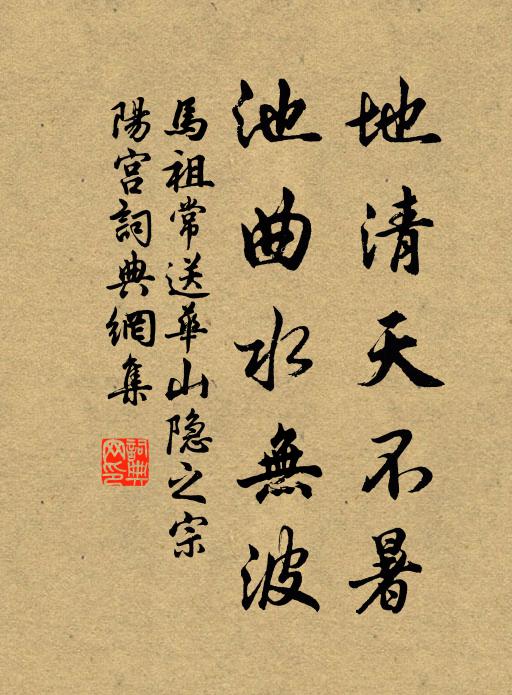 地清天不暑
池曲水無波
馬祖常送華山隐之宗
陽宫詞典網集
詞典網印